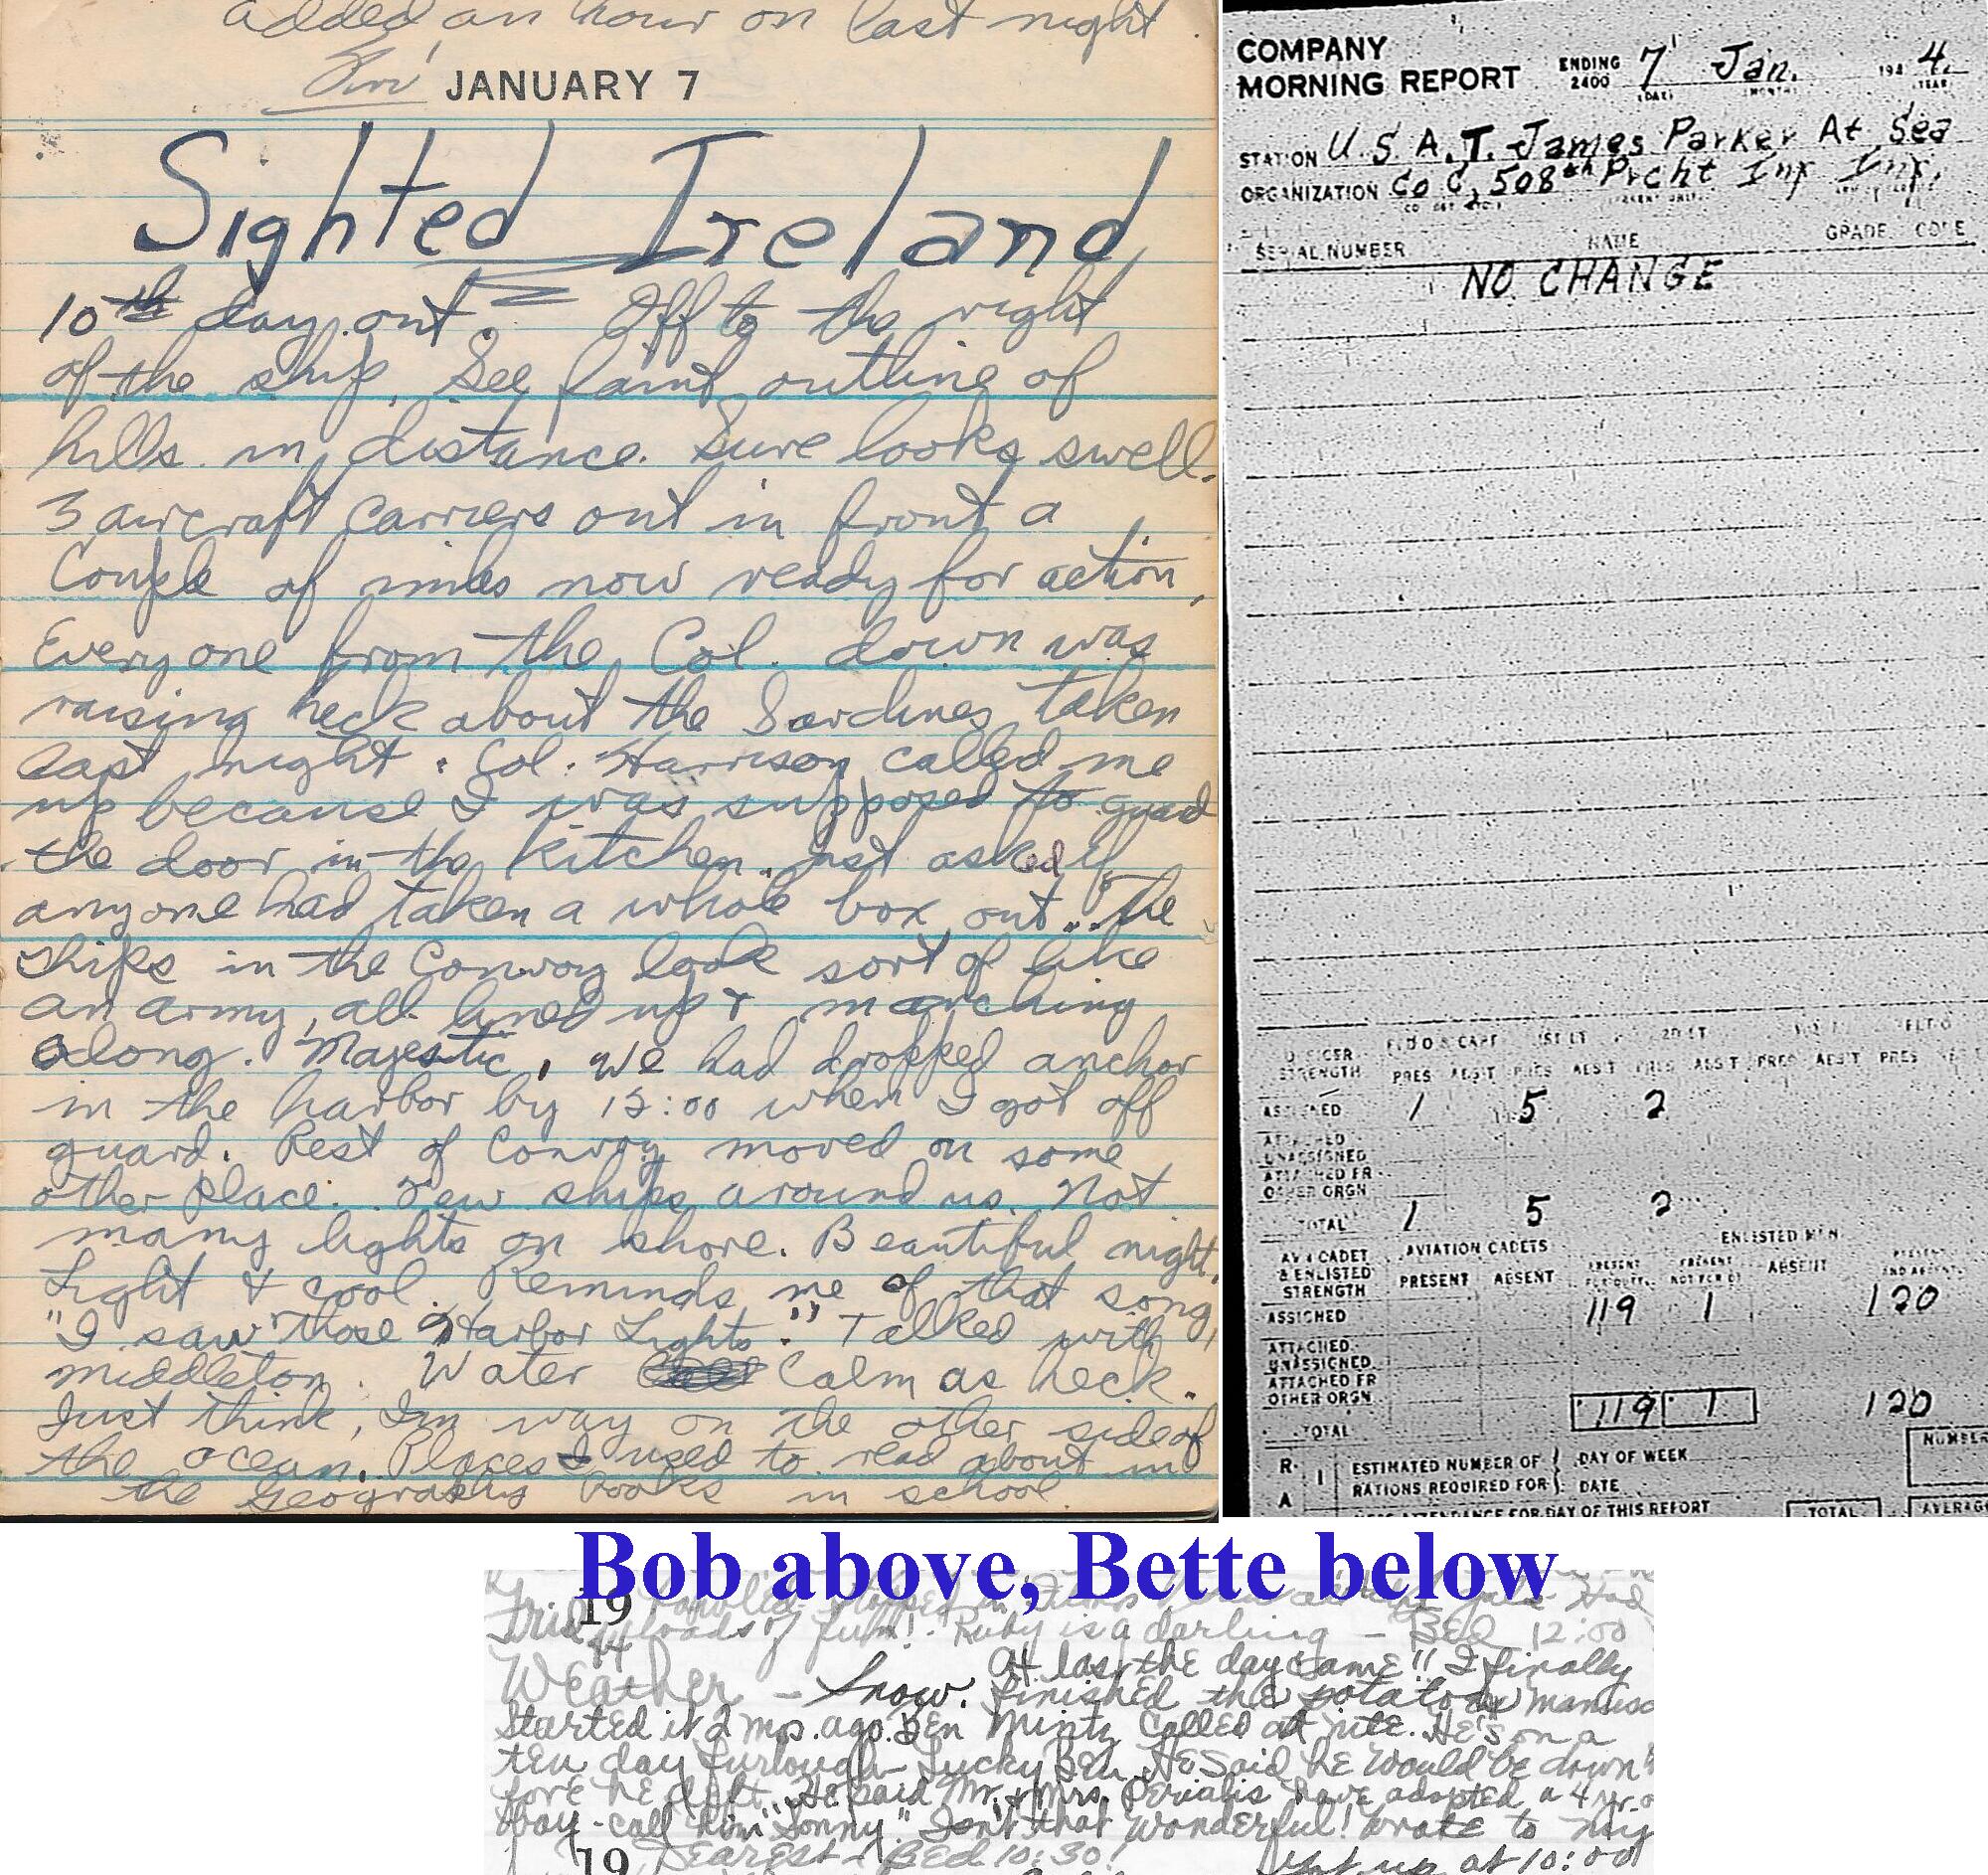 added an hour on last night.
Fri JANUARY 7
Sighted Ireland
10th day out. Off to the right
of the ship. See faint outline of
hills in distance. Sure looks swell.
3 aircraft carriers out in front a
Couple of miles now ready for action,
Everyone from the Col. down was
raising heck about the Sardines taken
last night. Col. Harrison called me
up because I was supposed to guard
the door in the kitchen. Just asked if
anyone had taken a whole box out. The
ships in the Convoy look sort of like
an army, all lined up & marching
along. Majestic, we had dropped anchor
in the harbor by 12:00 when I got off
guard. Rest of Convoy moved on some
other place. Few ships around us. Not
many lights on shore. Beautiful night.
Light & cool. Reminds me of that song,
"I saw those Harbor Lights." Talked with
middleton. Water Calm as heck.
Just think, Im way on the other side of
the ocean. Places I used to read about in
the Geography books in school.
COMPANY
MORNING REPORT ENDING 2400 7 Jan. 194 4.
(DATE) (MONTH) YEAR
STATION U.S.A.T. James Parker At Sea
ORGANIZATION Co C, 508th Prcht Inf Inf.
SERIAL NUMBER NAME GRADE CODE
NO CHANGE
OFFICER STRENGTH FLD O & CAPT 1ST LT 2D LT FLT O
PRES ABST PRES ABST PRES ABST PRES ABST PRES
ASSIGNED 1 5 2
ATTACHED UNASSIGNED
ATTACHED FR OTHER ORGN
TOTAL 1 5 2
AV CADET & ENLISTED STRENGTH AVIATION CADETS ENLISTED MEN
PRESENT ABSENT PRESENT FOR DUTY PRESENT NOT FOR D ABSENT PRESENT AND ABSENT
ASSIGNED 119 1 120
ATTACHED UNASSIGNED
ATTACHED FR OTHER ORGN
TOTAL 119 1 120
R A 1 ESTIMATED NUMBER OF RATIONS REQUIRED FOR DAY OF WEEK DATE NUMBER
MESS ATTENDANCE FOR DAY OF THIS REPORT TOTAL AVERAG
Bob above, Bette below
19 stopped in Had
Frid loads of fun! Ruby is a darling - BED 12:00
44
Weather - Snow. At last the day came!! I finally
finished the potato manusc
Started it 2 mos. ago. Ben Mintz called at nite. He's on a
ten day furlough - Lucky Ben. He said he would be down
fore he left. He said Mr. & Mrs. have adopted a 4 yr. o
boy - call him "Sonny". Isn't that wonderful! Wrote to my
19 DEAREST - BED 10:30!
up at 10:00